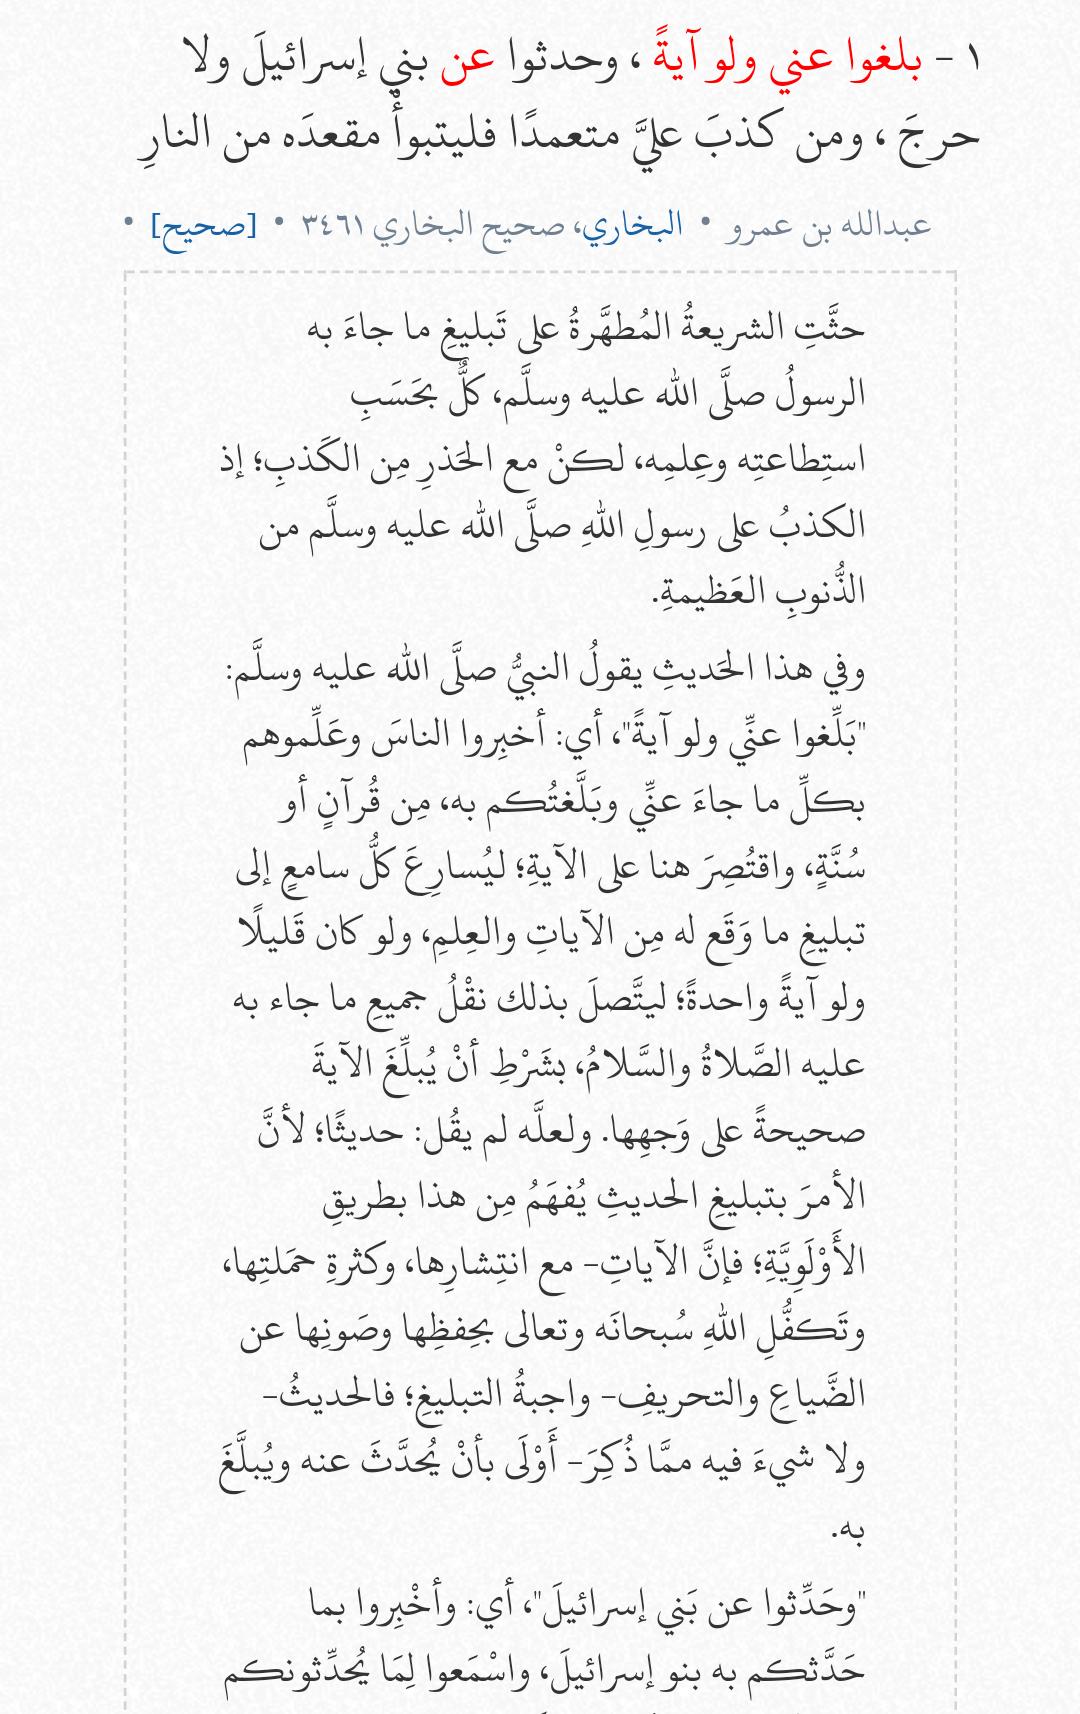 ١ - بلغوا عني ولو آيةً ، وحدثوا عن بني إسرائيلَ ولا
حرجَ ، ومن كذبَ عليَّ متعمدًا فليتبوأْ مقعدَه من النارِ
عبدالله بن عمرو • البخاري، صحيح البخاري ٣٤٦١ • [صحيح] •
حثَّتِ الشريعةُ المُطهَّرةُ على تَبليغِ ما جاءَ به
الرسولُ صلَّى الله عليه وسلَّم، كلٌّ بحَسَبِ
استِطاعتِه وعِلمِه، لكنْ مع الحَذرِ مِن الكَذبِ؛ إذ
الكذبُ على رسولِ اللهِ صلَّى الله عليه وسلَّم من
الذُّنوبِ العَظيمةِ.
وفي هذا الحَديثِ يقولُ النبيُّ صلَّى الله عليه وسلَّم:
"بَلِّغوا عنِّي ولو آيةً"، أي: أخبِروا الناسَ وعَلِّموهم
بكلِّ ما جاءَ عنِّي وبَلَّغتُكم به، مِن قُرآنٍ أو
سُنَّةٍ، واقتُصِرَ هنا على الآيةِ؛ ليُسارِعَ كلُّ سامعٍ إلى
تبليغِ ما وَقَع له مِن الآياتِ والعِلمِ، ولو كان قَليلًا
ولو آيةً واحدةً؛ ليتَّصلَ بذلك نقْلُ جميعِ ما جاء به
عليه الصَّلاةُ والسَّلامُ، بشَرْطِ أنْ يُبلِّغَ الآيةَ
صحيحةً على وَجهِها. ولعلَّه لم يقُل: حديثًا؛ لأنَّ
الأمرَ بتبليغِ الحديثِ يُفهَمُ مِن هذا بطريقِ
الأَوْلَوِيَّةِ؛ فإنَّ الآياتِ- مع انتِشارِها، وكثرةِ حمَلتِها،
وتَكفُّلِ اللهِ سُبحانَه وتعالى بحِفظِها وصَونِها عن
الضَّياعِ والتحريفِ- واجبةُ التبليغِ؛ فالحديثُ-
ولا شيءَ فيه ممَّا ذُكِرَ- أَوْلَى بأنْ يُحدَّثَ عنه ويُبلَّغَ
به.
"وحَدِّثوا عن بَني إسرائيلَ"، أي: وأخْبِروا بما
حَدَّثكم به بنو إسرائيلَ، واسْمَعوا لِمَا يُحدِّثونكم